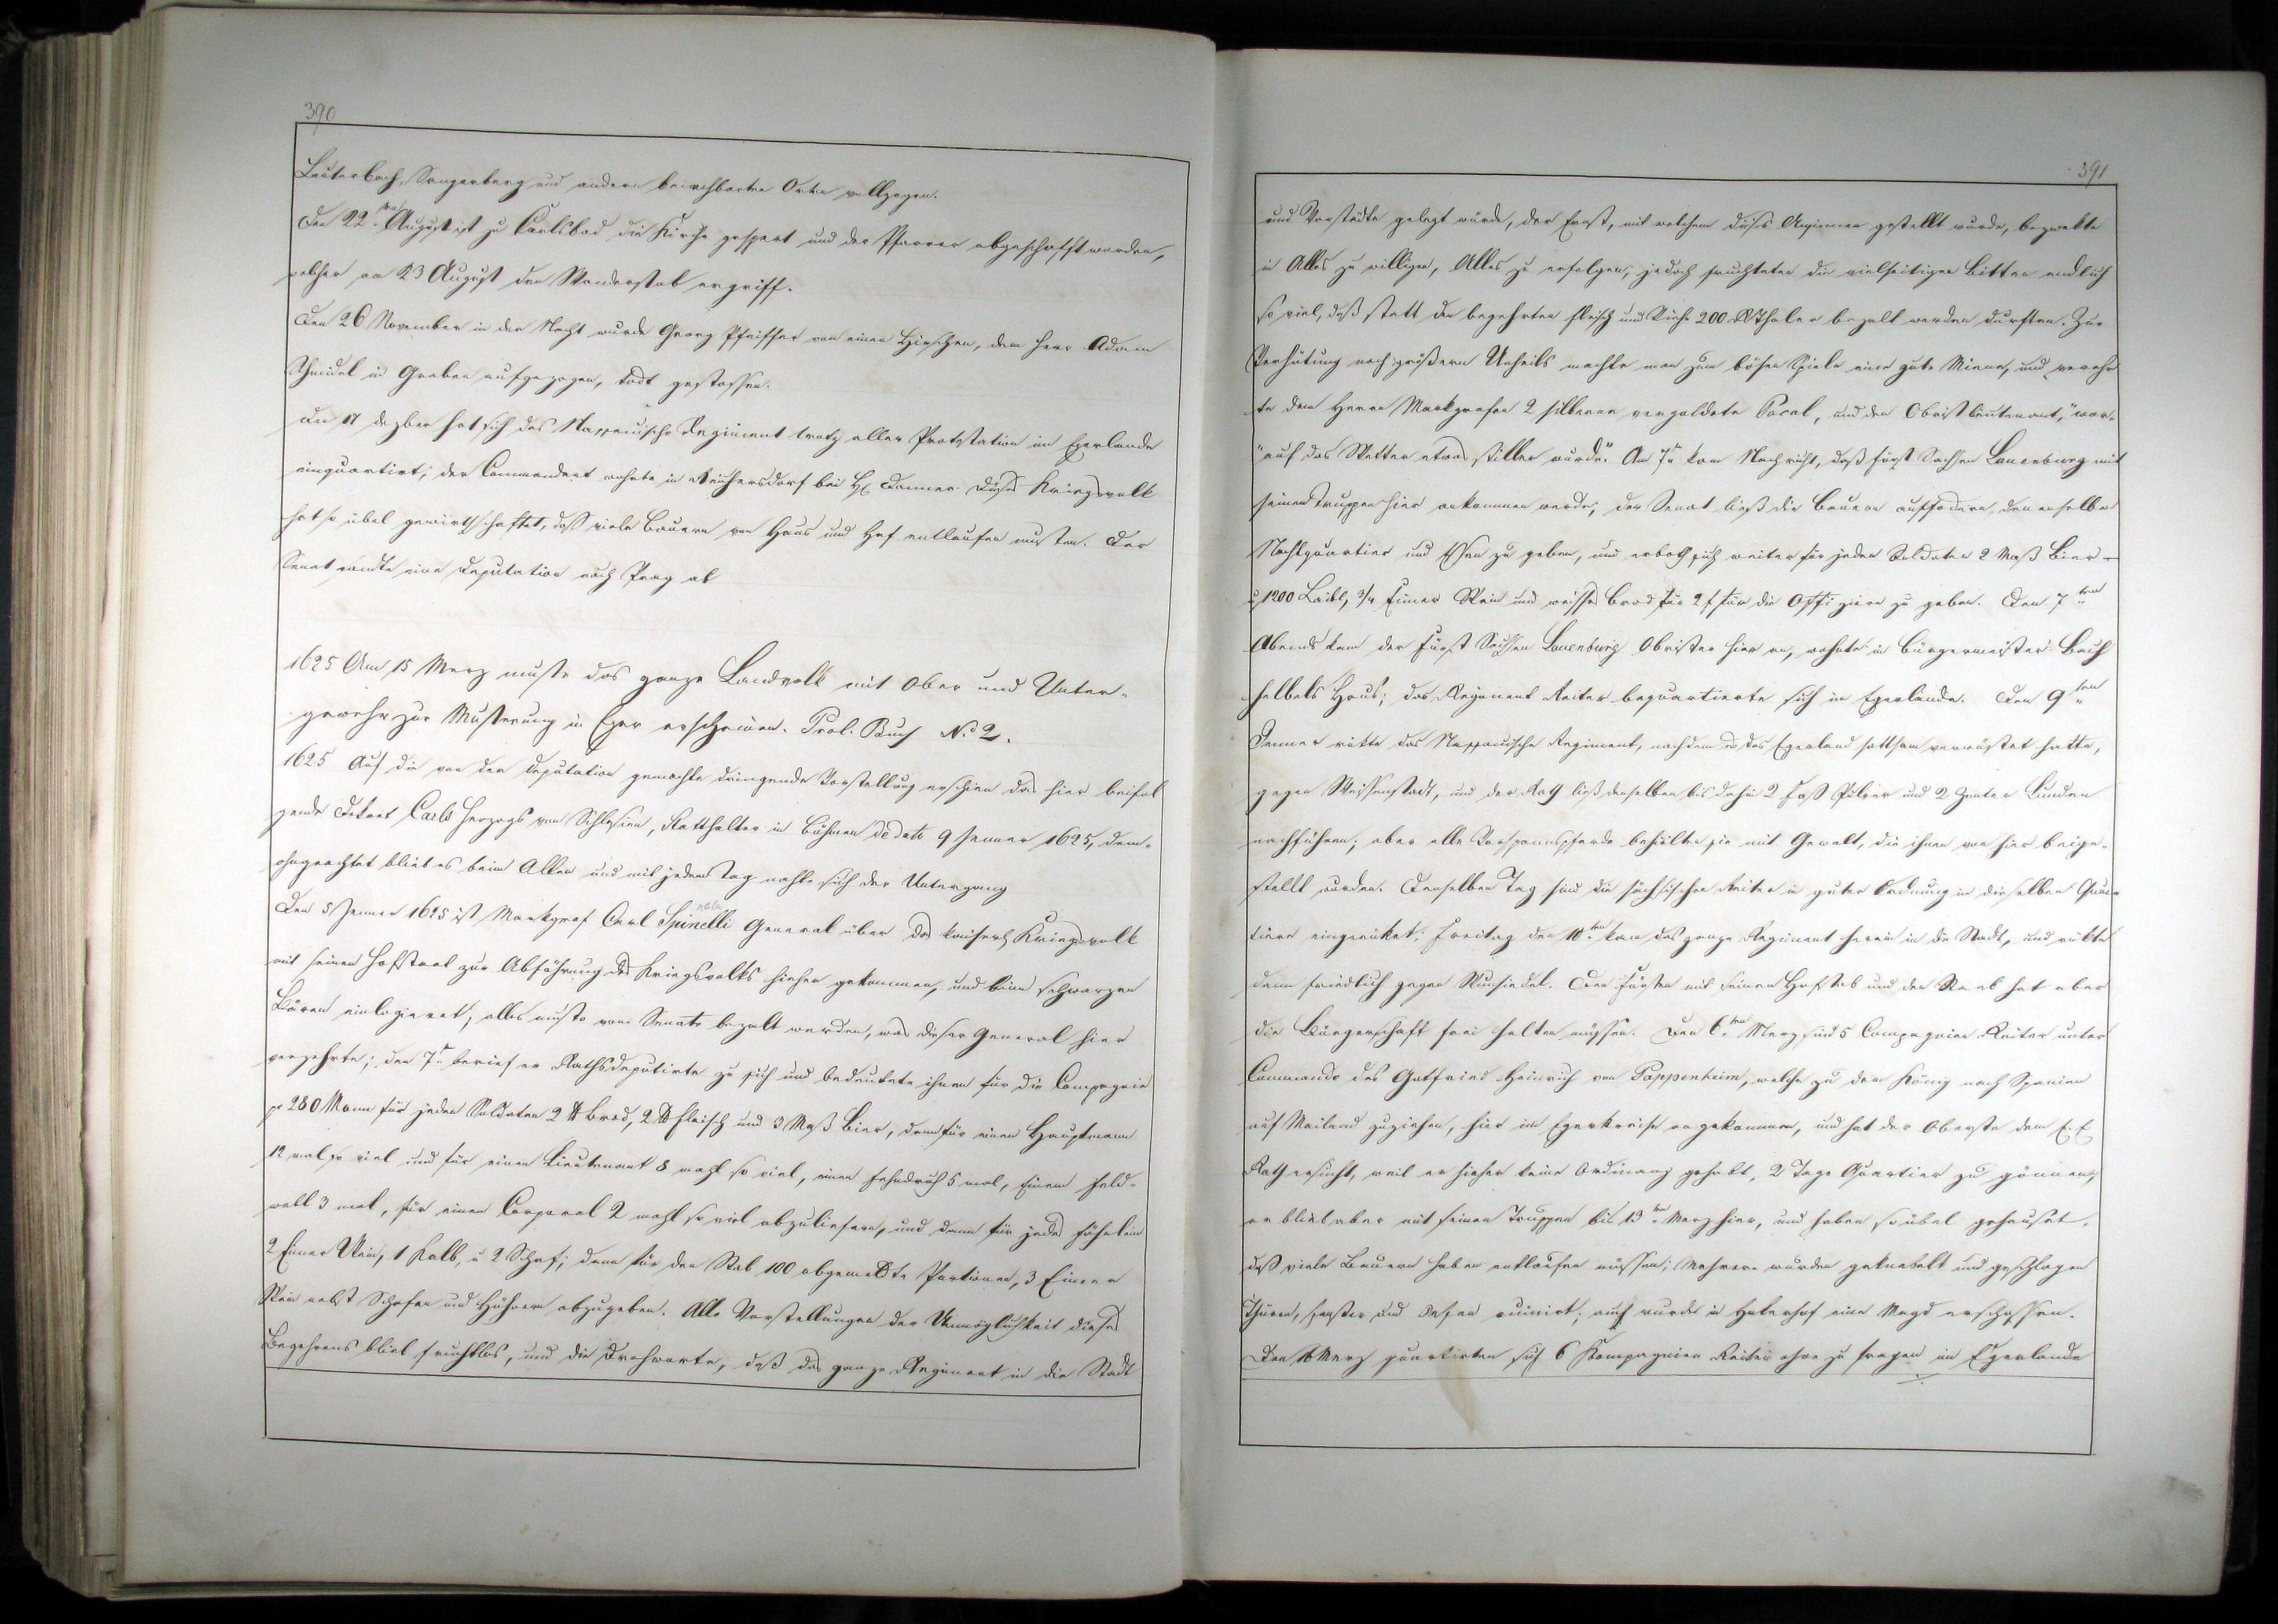 390
Lauterbach, Sangerberg und andern benachbarten Orten vollzogen.
Den 22ten August ist zu Carlsbad die Kirche gespert und der Pfarrer abgeschafft worden,
welcher am 23 August den Wanderstab ergriff.
Den 26 November in der Nacht wurde Georg Pfeiffer von einen Hirschen, den Herr Adam
Schmidel in Graben aufgezogen, todt gestossen.
Den 17 dezber hat sich das Nassauische Regiment trotz aller Protestation im Egerlande
einquartirt; der Commendant wohnte in bei H Danner. Dieses Kriegsvolk
hat so übel gewirthschaftet, daß viele Bauern von Haus und Hof entlaufen musten. Der
Senat sandte eine Deputation nach Prag ab
1625 Am 15 Merz muste das ganze Landvolk mit Ober und Unter-
gewehr zur Musterung in Eger erscheinen. Prol. Buch No 2.
1625 Auf die von der Deputation gemachte dringende Vorstellung erschien das hier beifol
gende Dekret Carls Herzogs von Schlesien, Statthalter in Böhmen de dato 9 Jenner 1625, dem-
ohngeachtet blieb es beim Alten und mit jedem Tag nahte sich der Untergang
Den 5 Jenner 1625 ist Markgraf Carl Spinelli General über das kaiserl Kriegsvolk
mit seinen Hofstaat zur Abführung des Kriegsvolks hieher gekommen, und beim schwarzen
Bären einlogieret; alles muste vom Senate bezalt werden, was dieser General hier
verzehrte; den 7t berief er Rathsdeputirte zu sich und bedeutete ihnen für die Compagnie
pr 280 Mann für jeden Soldaten 2 ℔ Brod, 2 ℔ Fleisch und 3 Maß Bier, dann für einen Hauptmann
12 mal so viel und für einen Lieutenant 8 mahl so viel, einen Fehndrich 5 mal, einem Feld-
webl 3 mal, für einen Corporal 2 mahl so viel abzuliefern, und dann für jedes Fähnlein
2 Eimer Wein, 1 Kalb, u 2 Schaf; dann für den Stab 100 abgemeldte Portionen, 3 Eimer
Wein nebst Schafen und Hühnern abzugeben. Alle Vorstellungen der Unmöglichkeit dieses
Begehrens blieb fruchtlos, und die Drohworte, daß das ganze Regiment in die Stadt
391
und Vorstädte gelegt würde, der Ernst, mit welchem dieses Ansinnen gestellt wurde, bezwekte
in Alles zu willigen, Alles zu erfolgen; jedoch fruchteten die vielseitigen Bitten endlich
so viel, daß statt den begehrten Fleisch und Viehe 200 RThaler bezalt werden durften. Zur
Verhütung noch größern Unheils machte man zum bösen Spiele eine gute Miene, und verehr
te dem Herrn Markgrafen 2 silberne vergoldete Pocal, und den Obristleutenant, "wor-
"auf das Wetter etwas stiller wurde." Am 7t kam Nachricht, daß Fürst Sachsen Lauenburg mit
seinen Truppen hier ankommen werde; der Senat ließ die Bauern auffodern, denenselben
Nachtquartier und Essen zu geben, und erboth sich weiter für jeden Soldaten 2 Maß Bier
u 1200 Laibl, 3/4 Eimer Wein und weisses Brod für 2 f für die Offiziere zu geben. Den 7ten
Abends kam der Fürst Sachsen Lauenburg Obrister hier an, wohnte in Bürgermeister Bach
helbels Haus; das Regiment Reiter bequartierte sich im Egerlande. Den 9ten
Jenner rükte das Nassauische Regiment, nachdem es das Egerland sattsam verwüstet hatte,
gegen Weissenstadt, und der Rath ließ denselben bis dahin 2 Faß Pulver und 2 Zenter Lunden
nachführen; aber alle Vorspannspferde behielten sie mit Gewalt, die ihnen von hier beige-
stellt wurden. Denselben Tag sind die sächsischen Reiter in guter Ordnung in dieselben Quar-
tiere eingerüket. Freitag den 10ten kam das ganze Regiment herein in die Stadt, und rükte
dann friedlich gegen Wunsiedel. Den Fürsten mit seinen Hofstab und den Staab hat aber
die Bürgerschaft frei halten müssen. Den 6ten Merz sind 5 Compagnien Reiter unter
Commando des Gottfried Heinrich von Pappenheim, welche zu dem König nach Spanien
auf Mailand zugiehen, hier im Egerkreise angekommen, und hat der Oberste dem E. E
Rath ersucht, weil er hieher keine Ordinanz gehabt, 2 Tage Quartier zu gönnen,
er blieb aber mit seinen Truppen bis 13ten Merz hier, und haben so übel gehauset,
daß viele Bauern haben entloffen müssen; Mehrere wurden geknebelt und geschlagen
Thüren, Fenster und Oefen ruinirt; auch wurde in Haterhof eine Magd erschossen.
Den 16 Merz quartirten sich 6 Kompagnien Reiter ohne zu fragen im Egerlande